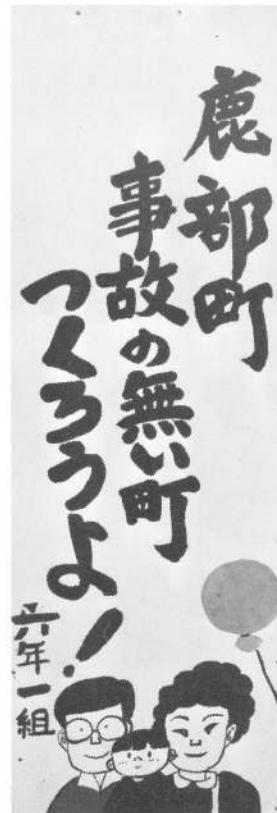 鹿部町
事故の無い町
つくろうよ!
六年一組